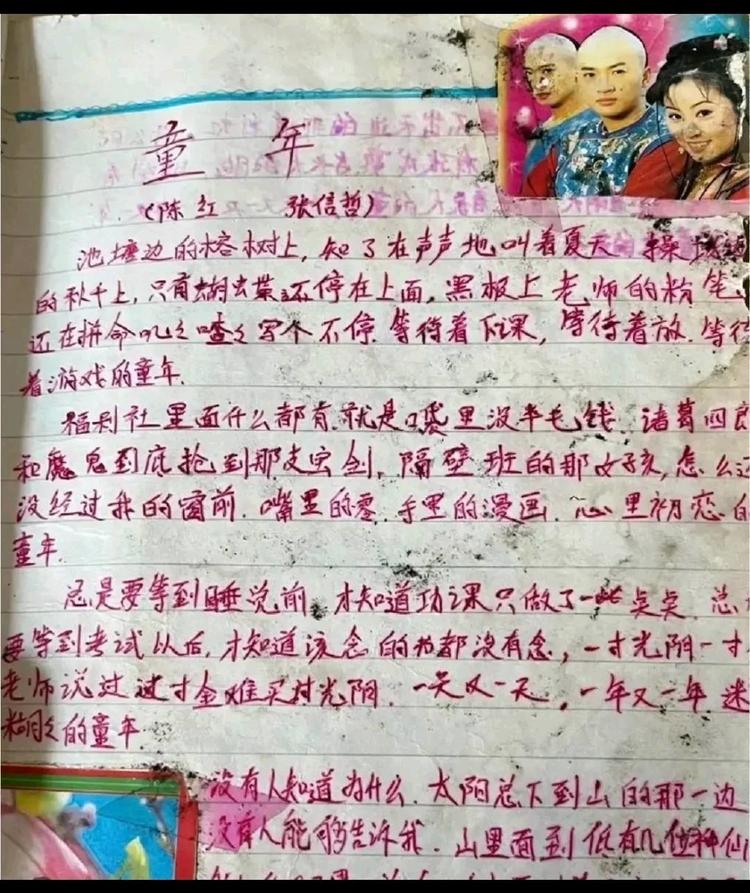 童年
(陈红 张信哲)
池塘边的榕树上,知了在声声地叫着夏天 操场
的秋千上,只有蝴蝶还停在上面,黑板上老师的粉笔
还在拼命叽々喳々写个不停.等待着下课,等待着放.等待
着游戏的童年.
福利社里面什么都有.就是口袋里没半毛钱.诸葛四郎
和魔鬼到底抢到那支宝剑,隔壁班的那女孩,怎么还
没经过我的窗前.嘴里的零.手里的漫画.心里初恋的
童年.
总是要等到睡觉前,才知道功课只做了一些点点.总
要等到考试以后,才知道该念的书都没有念,一寸光阴一寸
老师说过过寸金难买寸光阴.一天又一天,一年又一年 迷
糊々的童年.
没有人知道为什么.太阳总下到山的那一边
没有人能够告诉我.山里面到低有几位神仙